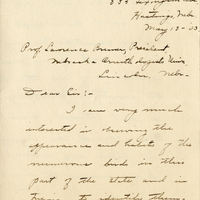 Hastings, Nebr.
May 12-03
Prof Lawrence Bruner, President
Nebraska Ornith
Lincoln, Nebr-
Dear Sir:-
I am very much
interested in
appearance and habits of the
numerous birds in this
part of the state and in
to identify them